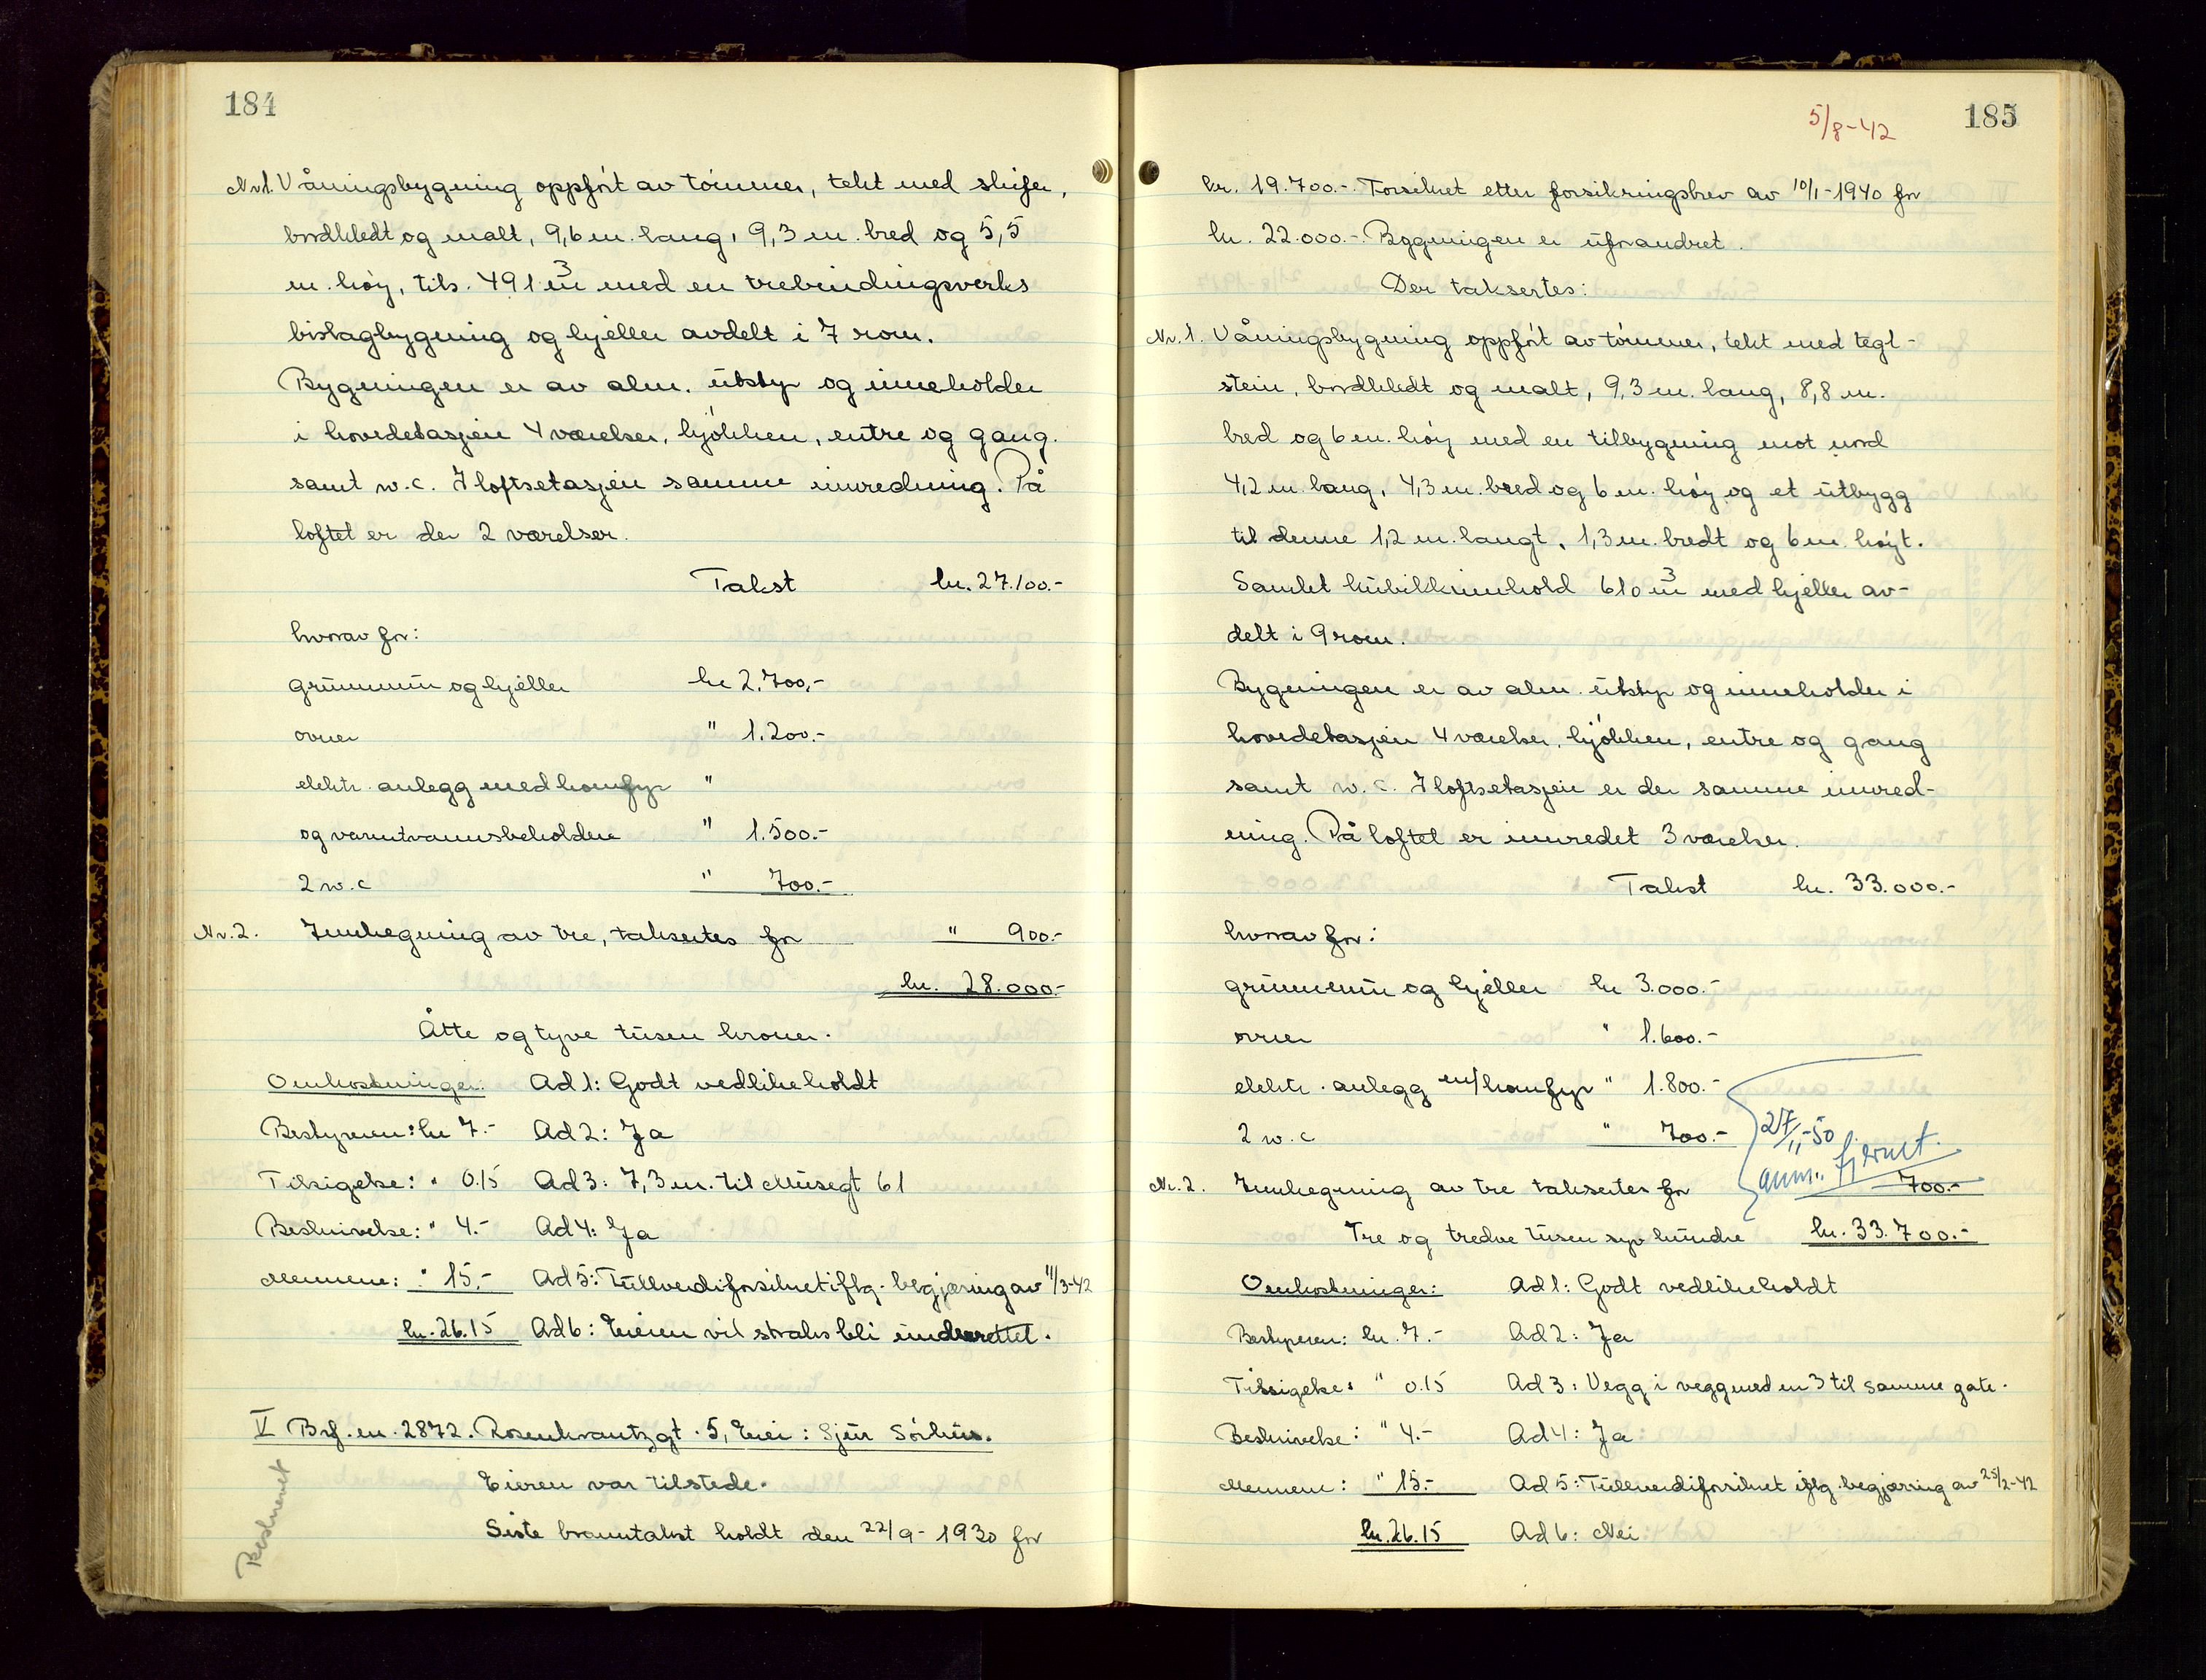 184
Nr.1. Våningsbygning oppført av tømmer, tekt med skifer,
bordkledt og malt, 9,6 m. lang, 9,3 m. bred og 5,5
m. høy, tils. 491 m³ med en trebindingsverks
bislagbygning og kjeller avdelt i 7 rom.
Bygningen er av alm. utstyr og inneholder
i hovedetasjen 4 værelser, kjøkken, entre og gang
samt w.c. I loftsetasjen samme innredning. På
loftet er der 2 værelser.
Takst kr. 27.100.-
hvorav for:
grunnmur og kjeller kr 2.700,-
ovner " 1.200.-
elektr. anlegg med komfyr "
og varmtvannsbeholdere " 1.500.-
2 w.c " 700.-
Nr.2. Innhegning av tre, takseres for " 900.-
kr. 28.000.-
Åtte og tyve tusen kroner.
Omkostninger: Ad 1: Godt vedlikeholdt
Bestyreren: kr 7.- Ad 2: Ja
Tilsigelse: " 0.15 Ad 3: 7,3 m. til Musegt 61
Beskrivelse: " 4.- Ad 4: Ja
Mennene: " 15.- Ad 5: Fullverdiforsikret iflg. begjæring av 11/3-42
kr. 26.15 Ad 6: Eieren vil straks bli underrettet.
V Brf. nr. 2872. Rosenkrantzgt. 5, Eier: Sjur Sørhus.
Eieren var tilstede.
Beskrevet
Siste branntakst holdt den 22/9-1930 for
5/8-42
185
kr. 19.700.- Forsikret etter forsikringsbrev av 10/1-1940 for
kr. 22.000.- Bygningen er uforandret.
Der taksertes:
Nr. 1. Våningsbygning oppført av tømmer, tekt med tegl-
stein, bordkledt og malt, 9,3 m. lang, 8,8 m.
bred og 6 m. høy med en tilbygning mot nord
4,2 m. lang, 4,3 m. bred og 6 m. høy og et utbygg
til denne 1,2 m. langt, 1,3 m. bredt og 6 m. høyt.
Samlet kubikkinnhold 610 m³ med kjeller av-
delt i 9 rom.
Bygningen er av alm. utstyr og inneholder i
hovedetasjen 4 værelser, kjøkken, entre og gang
samt w.c. I loftsetasjen er der samme innred-
ning. På loftet er innredet 3 værelser.
Takst kr. 33.000.-
hvorav for:
grunnmur og kjeller kr 3.000.-
ovner " 1.600.-
elektr. anlegg m/komfyr " 1.800.-
2 w.c " 700.-
27/11-50
anm. fjernet.
Nr. 2. Innhegning av tre takseres for 700.-
Tre og tredve tusen syv hundre kr. 33.700.-
Omkostninger: Ad 1: Godt vedlikeholdt
Bestyreren: kr. 7.- Ad 2: Ja
Tilsigelse: " 0.15 Ad 3: Vegg i vegg med nr 3 til samme gate.
Beskrivelse: " 4.- Ad 4: Ja
Mennene: " 15.- Ad 5: Fullverdiforsikret iflg. begjæring av 25/2-42
kr. 26.15 Ad 6: Nei